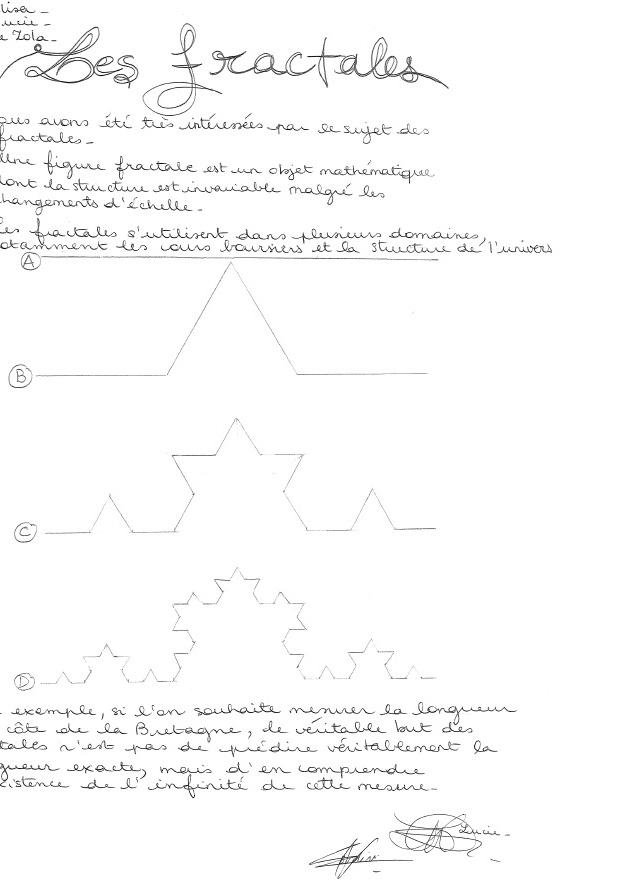 lisa -
ucie -
e Zola -
Les fractales
ous avons été très intéressées par le sujet des
fractales -
Une figure fractale est un objet mathématique
dont la structure est invariable malgré les
changements d'échelle -
es fractales s'utilisent dans plusieurs domaines,
otamment les cours boursiers et la structure de l'univers
A
B
C
D
exemple, si l'on souhaite mesurer la longueur
côte de la Bretagne, le véritable but des
tales n'est pas de prédire véritablement la
gueur exacte, mais d'en comprendre
istence de l'infinité de cette mesure -
Lucie -